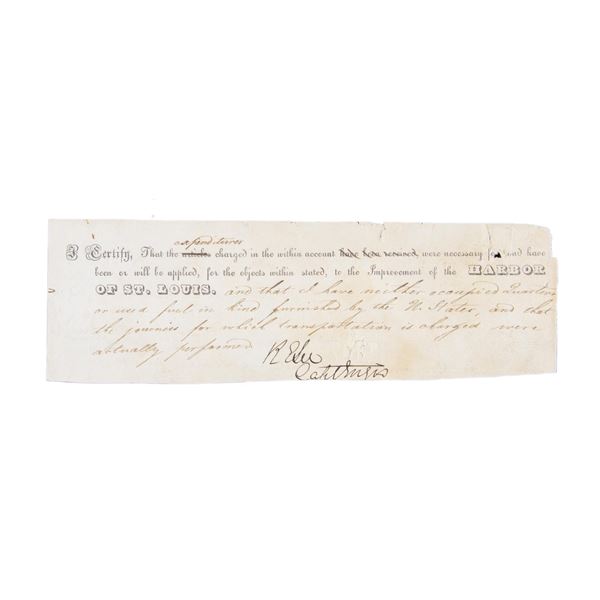 expenditures
I Certify, That the articles charged in the within account have been received, were necessary for, and have
been or will be applied, for the objects within stated, to the Improvement of the HARBOR
OF ST. LOUIS. and that I have neither occupied Quarters
or used fuel in kind furnished by the U. States, and that
the journeys for which transportation is charged were
actually performed
R E Lee
Capt Engrs